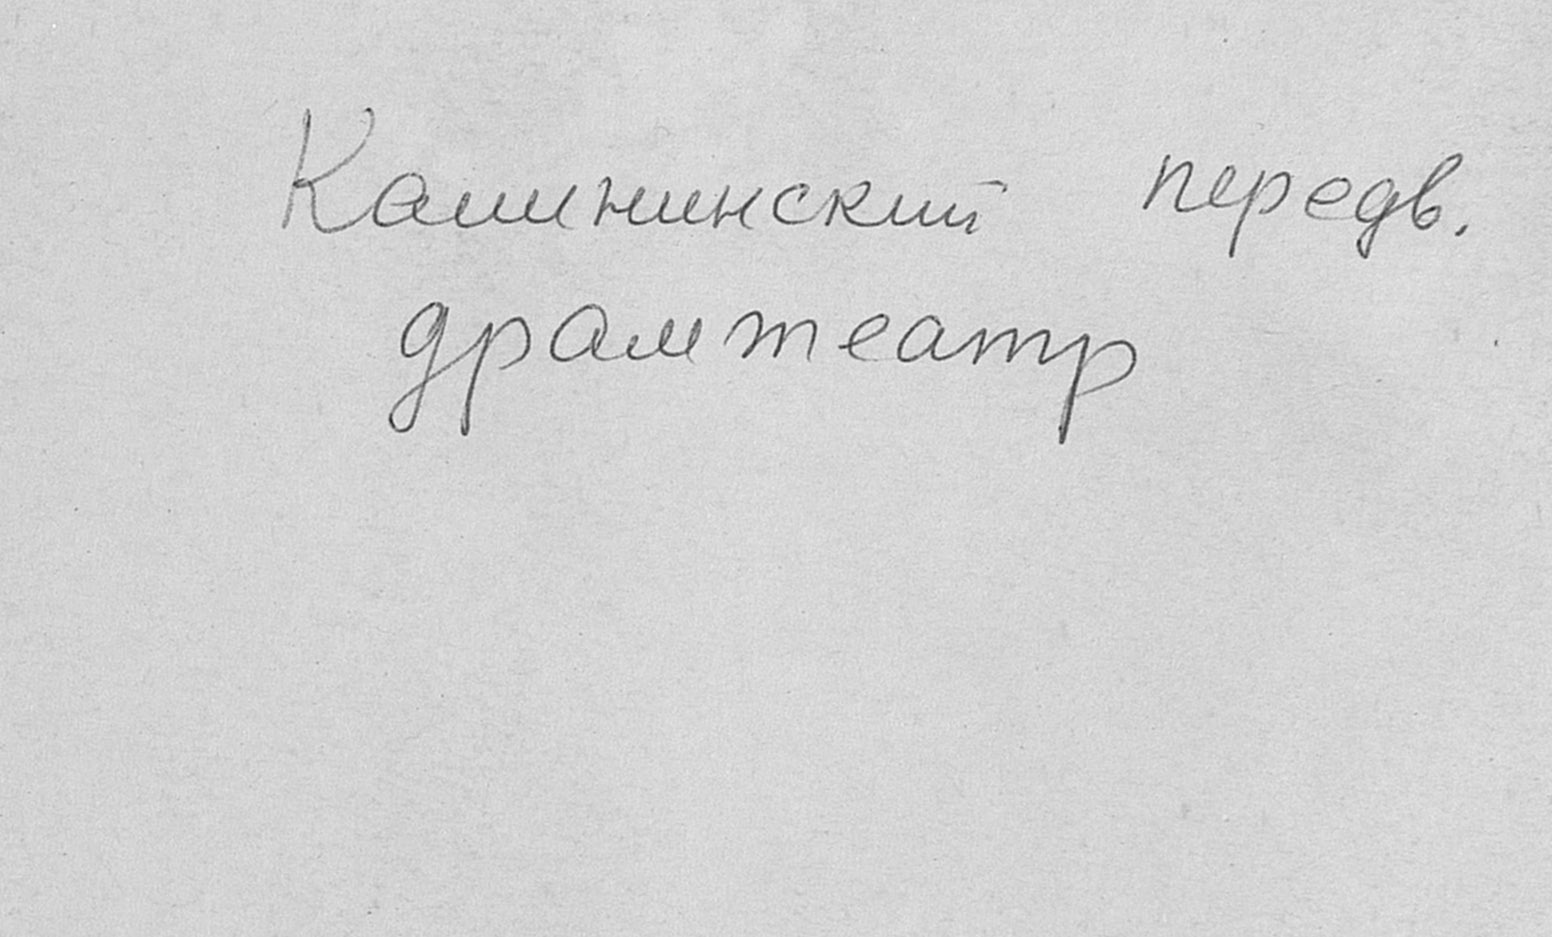 Калининский передв.
драмтеатр